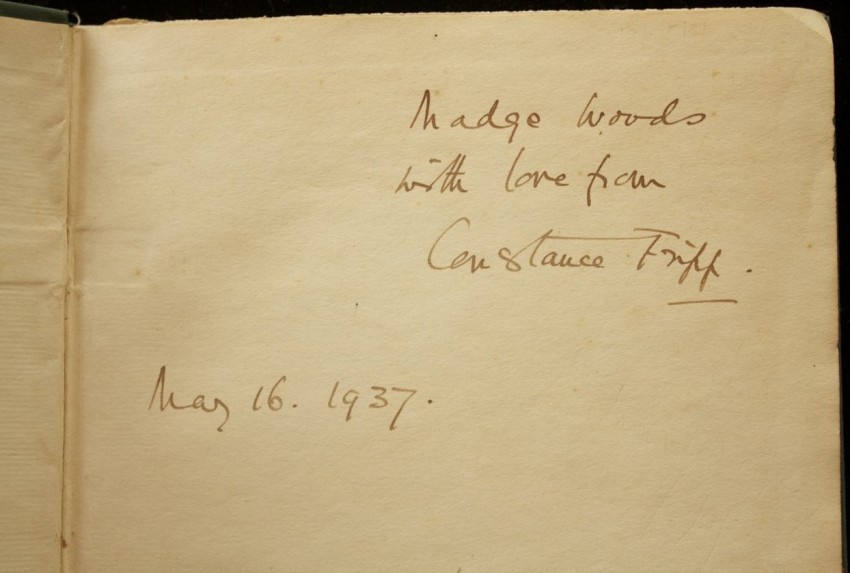 Madge Woods
with love from
Constance Fripp.
May 16. 1937.